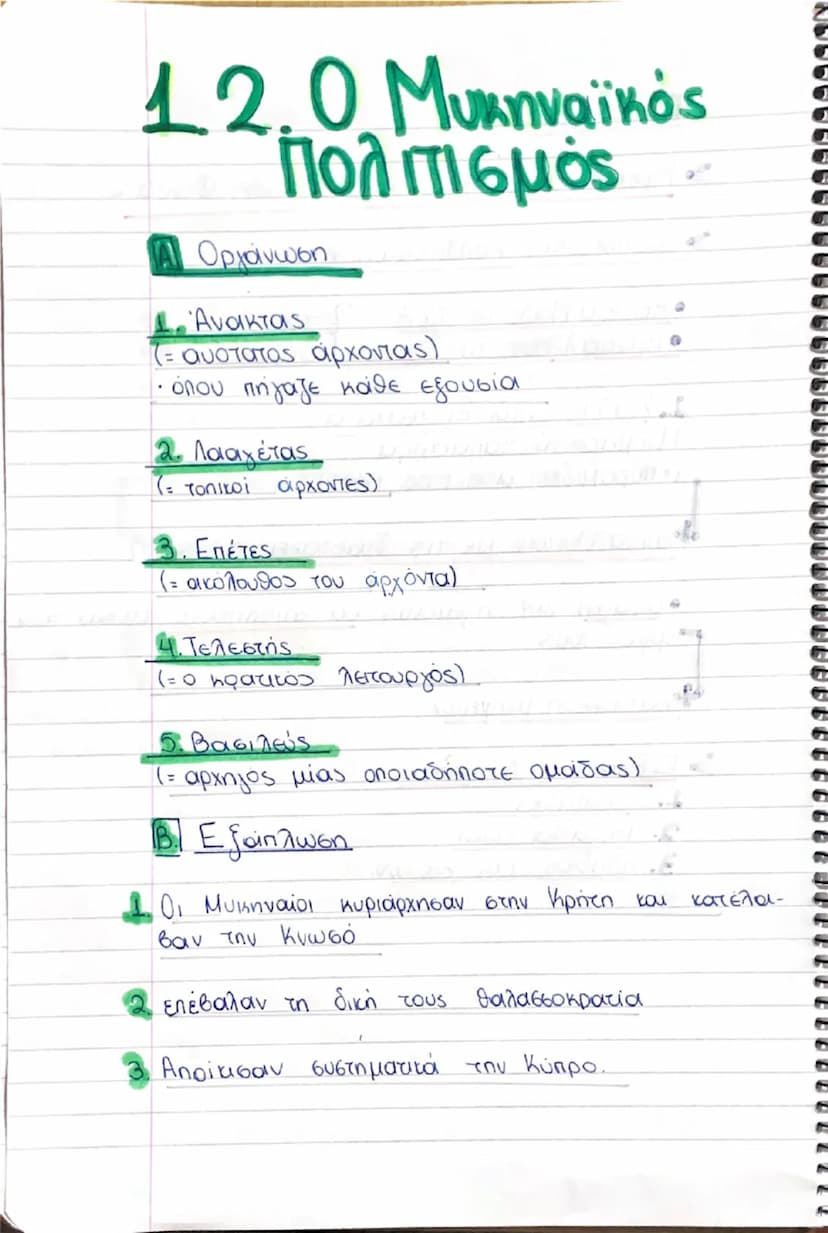 1.2. Ο Μυκηναϊκός
Πολιτισμός
Α Οργάνωση
1. Άνακτας
(= ανώτατος άρχοντας)
· όπου πήγαζε κάθε εξουσία
2. Λααγέτας
(= τοπικοί άρχοντες)
3. Επέτες
(= ακόλουθος του άρχόντα)
4. Τελεστής
(= ο κρατικός λειτουργός)
5. Βασιλεύς
(= αρχηγος μίας οποιαδήποτε ομάδας)
Β. Εξάπλωση
1. Οι Μυκηναίοι κυριάρχησαν στην Κρήτη και κατέλα-
βαν την Κνωσό
2. επέβαλαν τη δική τους θαλασσοκρατία
3. Αποίκισαν συστηματικά την Κύπρο.